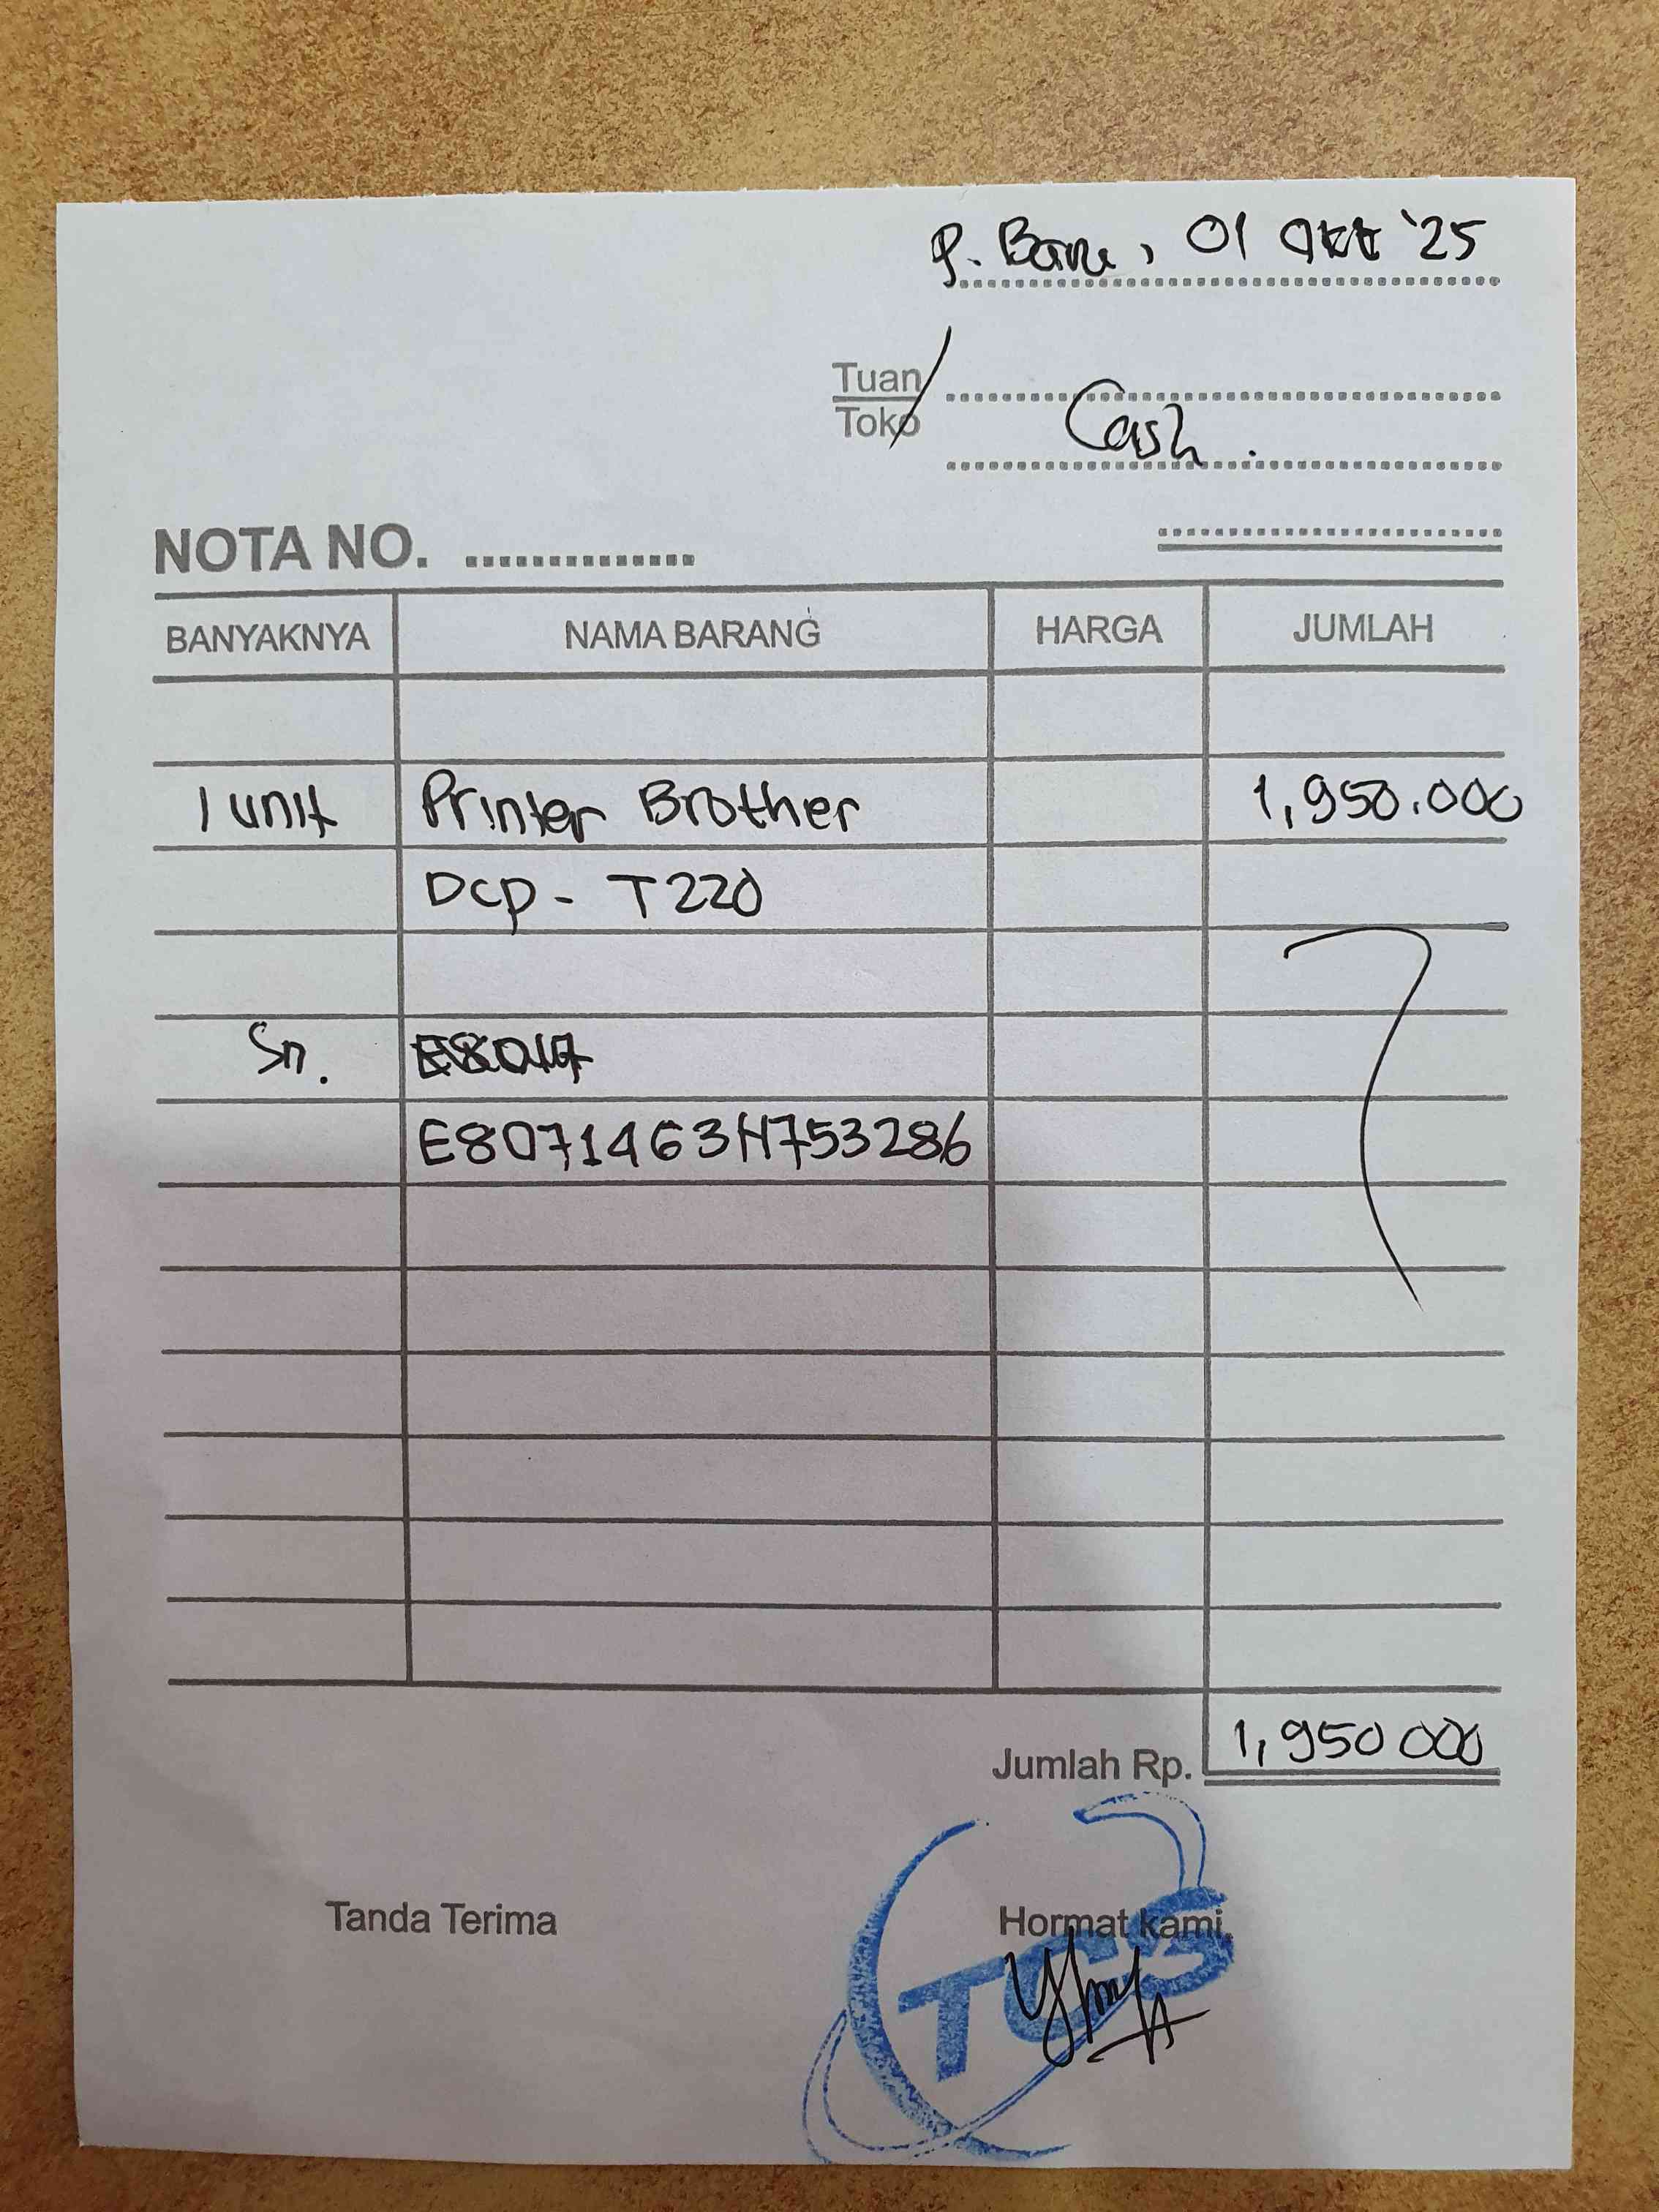 P. Baru, 01 Okt '25
Tuan
Toko
Cash.
NOTA NO.
BANYAKNYA NAMA BARANG HARGA JUMLAH
1 unit Printer Brother 1,950.000
Dcp - T220
Sn.
E8071463H753286
Jumlah Rp. 1,950 000
Tanda Terima Hormat kami,
TCS